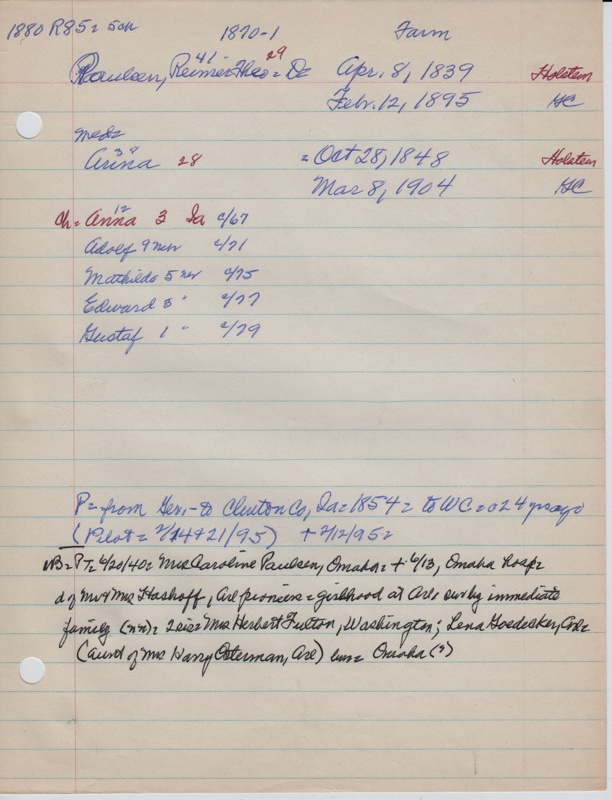 1880 R85 = 5ch 1870-1 Farm
41 29
Paulsen, Reimer Theo = Apr. 8, 1839 Holstein
Febr. 12, 1895 HC
med=
38
Anna 28 = Oct 28, 1848 Holstein
Mar 8, 1904 HC
12
Ch = Anna 3 Ia c/67
Adolf 9 c/71
Mathilda 5 c/75
Edward 3 " c/77
Gustaf 1 " c/79
P = from Ger. - to Clinton Co, Ia = 1854 = to WC = 24 yrs ago
(Pilot = 2/14 + 21/95) + 2/12/95 =
PT = 6/20/40 = Mrs Caroline Paulsen, Omaha = + 6/13, Omaha hosp =
d of Mr & Mrs Hashoff, Arl pioneers = girlhood at Arl = by immediate
family (nn) = 2 sis = Mrs Herbert Fulton, Washington; Lena Goedecker,
(aunt of Mrs Harry Osterman, Arl) = Omaha (?)